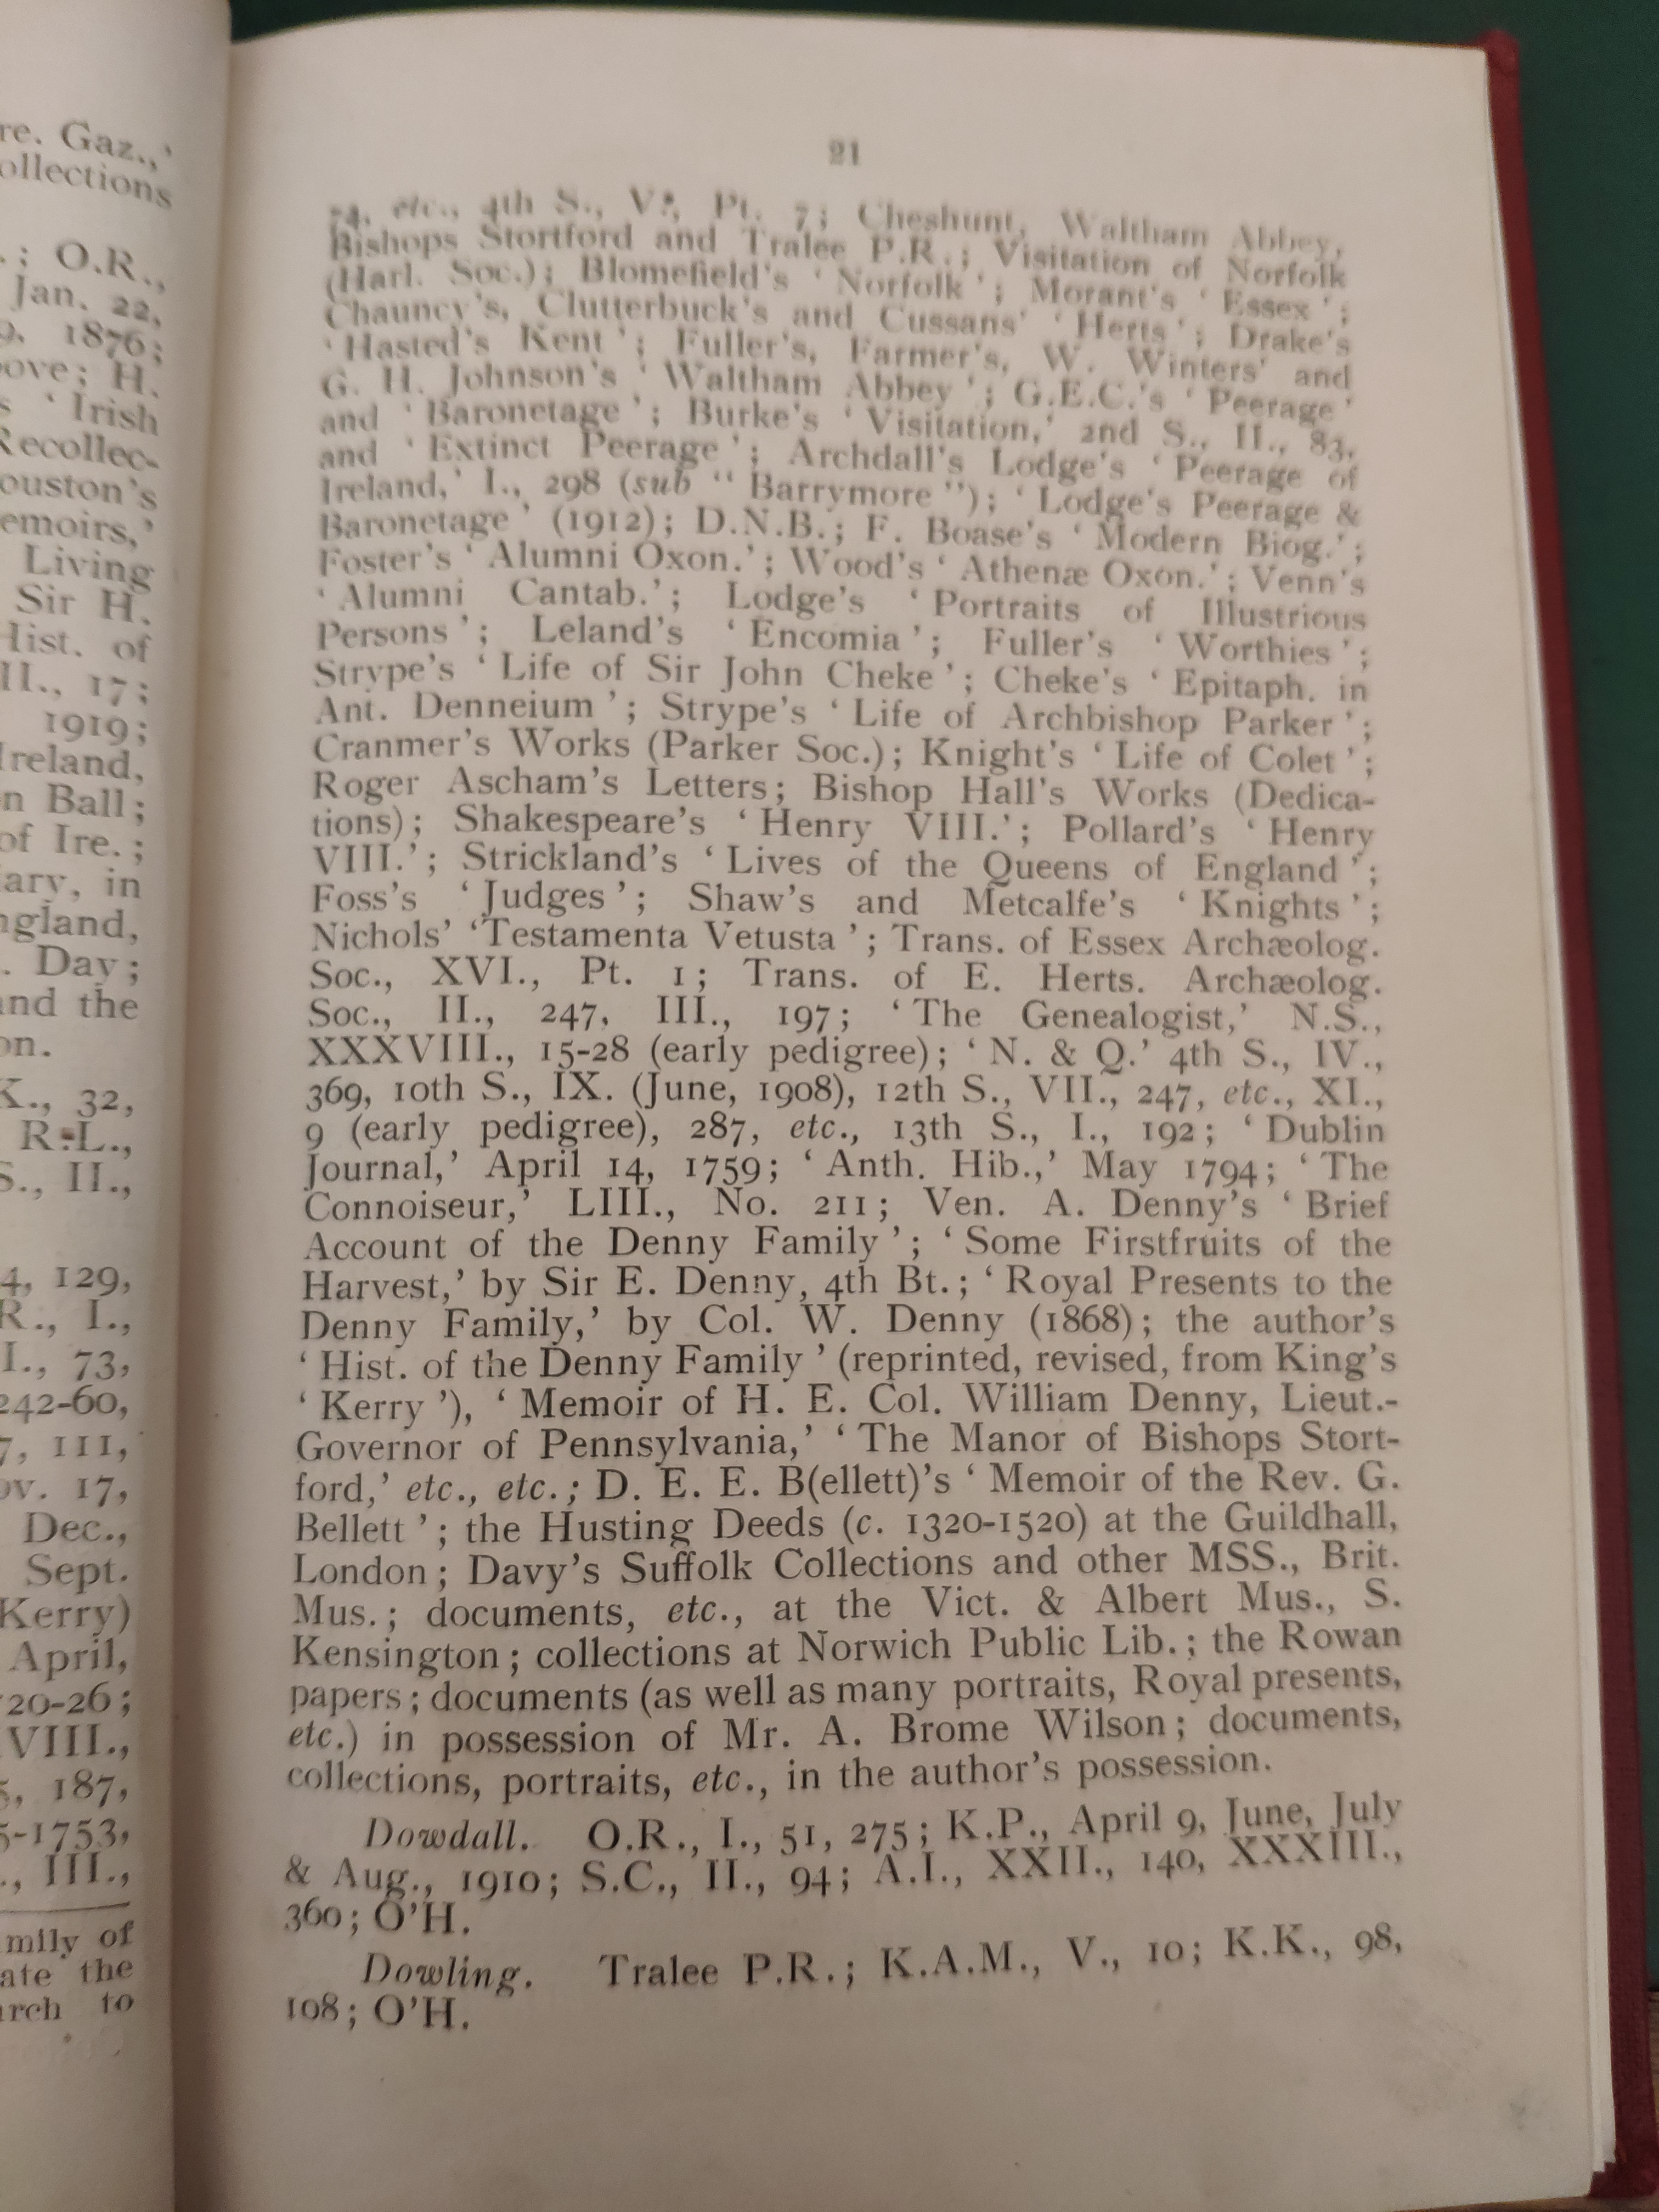 re. Gaz.,’
ollections
.; O.R.,
Jan. 22,
9, 1876;
ove; H.
s ‘ Irish
Recollec-
ouston's
emoirs,’
Living
Sir H.
Hist. of
II., 17;
1919;
Ireland,
n Ball;
of Ire.;
ary, in
ngland,
. Day;
and the
on.
K., 32,
R.L.,
S., II.,
4, 129,
R., I.,
I., 73,
242-60,
7, 111,
ov. 17,
Dec.,
Sept.
Kerry)
April,
20-26;
VIII.,
5, 187,
5-1753,
., III.,
mily of
ate the
arch to
21
74, etc., 4th S., V., Pt. 7; Cheshunt, Waltham Abbey,
Bishops Stortford and Tralee P.R.; Visitation of Norfolk
(Harl. Soc.); Blomefield's ‘ Norfolk ’; Morant's ‘ Essex ’;
Chauncy's, Clutterbuck's and Cussans' ‘ Herts ’; Drake's
‘ Hasted's Kent ’; Fuller's, Farmer's, W. Winters' and
G. H. Johnson's ‘ Waltham Abbey ’; G.E.C.'s ‘ Peerage ’
and ‘ Baronetage ’; Burke's ‘ Visitation,’ 2nd S., II., 83,
and ‘ Extinct Peerage ’; Archdall's Lodge's ‘ Peerage of
Ireland,’ I., 298 (sub “ Barrymore ”); ‘ Lodge's Peerage &
Baronetage ’ (1912); D.N.B.; F. Boase's ‘ Modern Biog.’;
Foster's ‘ Alumni Oxon.’; Wood's ‘ Athenæ Oxon.’; Venn's
‘ Alumni Cantab.’; Lodge's ‘ Portraits of Illustrious
Persons ’; Leland's ‘ Encomia ’; Fuller's ‘ Worthies ’;
Strype's ‘ Life of Sir John Cheke ’; Cheke's ‘ Epitaph. in
Ant. Denneium ’; Strype's ‘ Life of Archbishop Parker ’;
Cranmer's Works (Parker Soc.); Knight's ‘ Life of Colet ’;
Roger Ascham's Letters; Bishop Hall's Works (Dedica-
tions); Shakespeare's ‘ Henry VIII.’; Pollard's ‘ Henry
VIII.’; Strickland's ‘ Lives of the Queens of England ’;
Foss's ‘ Judges ’; Shaw's and Metcalfe's ‘ Knights ’;
Nichols' ‘Testamenta Vetusta ’; Trans. of Essex Archæolog.
Soc., XVI., Pt. 1; Trans. of E. Herts. Archæolog.
Soc., II., 247, III., 197; ‘ The Genealogist,’ N.S.,
XXXVIII., 15-28 (early pedigree); ‘ N. & Q.’ 4th S., IV.,
369, 10th S., IX. (June, 1908), 12th S., VII., 247, etc., XI.,
9 (early pedigree), 287, etc., 13th S., I., 192; ‘ Dublin
Journal,’ April 14, 1759; ‘ Anth. Hib.,’ May 1794; ‘ The
Connoiseur,’ LIII., No. 211; Ven. A. Denny's ‘ Brief
Account of the Denny Family ’; ‘ Some Firstfruits of the
Harvest,’ by Sir E. Denny, 4th Bt.; ‘ Royal Presents to the
Denny Family,’ by Col. W. Denny (1868); the author's
‘ Hist. of the Denny Family ’ (reprinted, revised, from King's
‘ Kerry ’), ‘ Memoir of H. E. Col. William Denny, Lieut.-
Governor of Pennsylvania,’ ‘ The Manor of Bishops Stort-
ford,’ etc., etc.; D. E. E. B(ellett)'s ‘ Memoir of the Rev. G.
Bellett ’; the Husting Deeds (c. 1320-1520) at the Guildhall,
London; Davy's Suffolk Collections and other MSS., Brit.
Mus.; documents, etc., at the Vict. & Albert Mus., S.
Kensington; collections at Norwich Public Lib.; the Rowan
papers; documents (as well as many portraits, Royal presents,
etc.) in possession of Mr. A. Brome Wilson; documents,
collections, portraits, etc., in the author's possession.
Dowdall. O.R., I., 51, 275; K.P., April 9, June, July
& Aug., 1910; S.C., II., 94; A.I., XXII., 140, XXXIII.,
360; O'H.
Dowling. Tralee P.R.; K.A.M., V., 10; K.K., 98,
108; O'H.